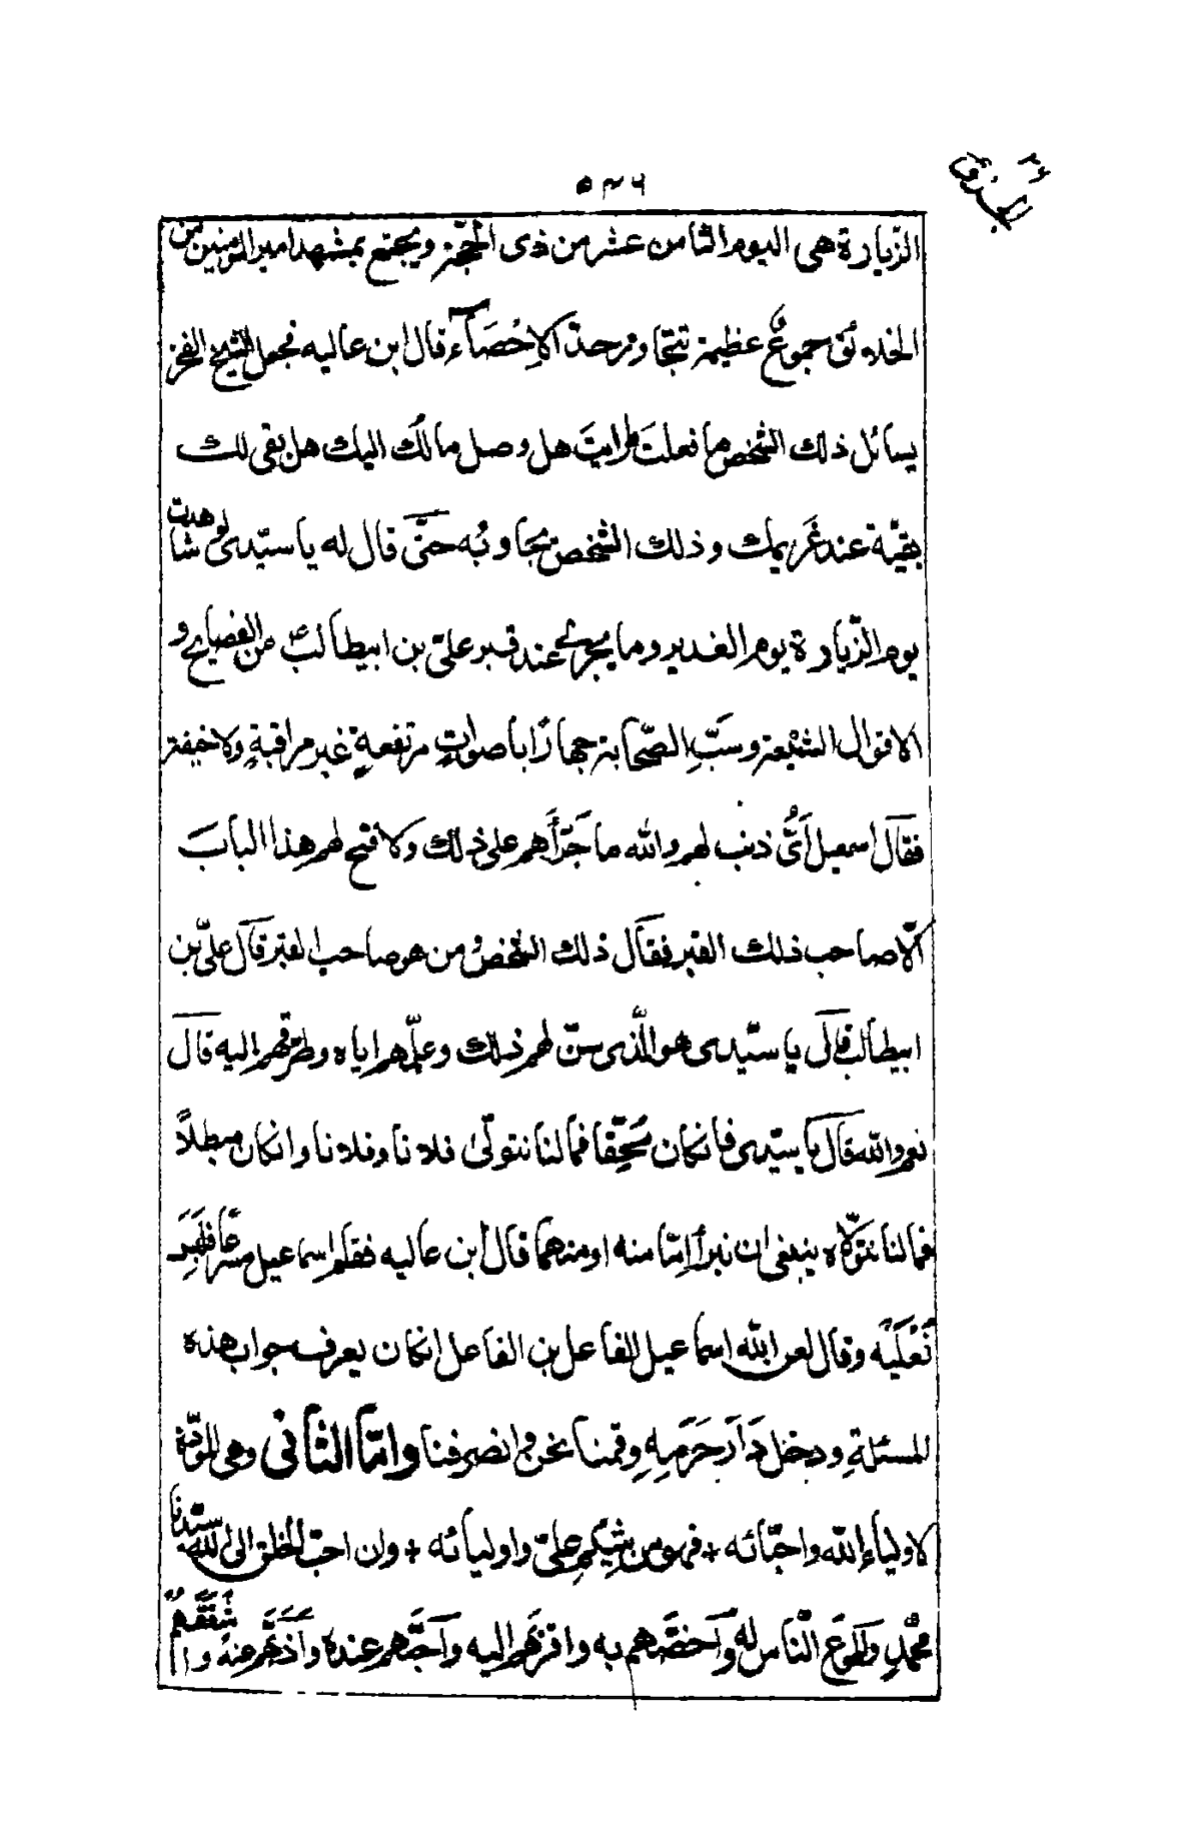 ٥٣٦
الزيارة هى اليوم الثامن عشر من ذى الحجّة ويجتمع بمشهد امير المؤمنين من
الخلائق جموعٌ عظيمة تتجاوز حدّ الاِحْصَآء قال ابن عاليه فجعل الشيخ الفخر
يسائل ذلك الشخص ما فعلت ما رايت هل وصل مالك اليك هل بقى لك
بقيّة عند غَريمك وذلك الشخص يجاوبُه حتّى قال له يا سيّدى لو شاهدت
يوم الزّيارة يوم الغدير وما يجرى عند قبر علىّ بن ابيطالبؑ من الفضايح و
الاقوال الشنيعة وسَبِّ الصّحابة جهارًا باصواتٍ مرتفعةٍ غير مراقبةٍ ولا خيفة
فقال اسمعيل اَىُّ ذنب لهم والله ما جَرَّأَهم على ذلك ولا فتح لهم هذا الباب
الّا صاحب ذلك القبر فقال ذلك الشخص ومن هو صاحب القبر قال علىّ بن
ابيطالب قال يا سيّدى هو الّذى سنّ لهم ذلك وعلّمهم ايّاه وطرّقهم اليه قال
نعم والله قال يا سيّدى فانكان مُحِقّا فما لنا نتولّىٰ فلانا وفلانا وانكان مبطلاً
فما لنا نتولّاه ينبغى ان نبرأ اِمّا منه او منهما قال ابن عاليه فقام اسماعيل مسرعًا فلَبِسَ
نَعْلَيْه وقال لعن الله اسماعيل الفاعل بن الفاعل انكان يعرف جواب هذه
المسئلةِ ودخل دَارَ حَرَمِهِ وقمنا نحن وانصرفنا وامّا الثانى وهى المودّة
لاولياءِ الله واحبّائه + فهو من شِيَمِ علىّ واوليائه + وان احبّ الخلق الى الله سيّدنا
محمّدٍ وَاَطوعَ النّاس له وَاَخصّهم به واقربهم اليه وَاَحبَّهم عنده وَاَذَبَّهم عنه و اَشْفَقَهُمْ